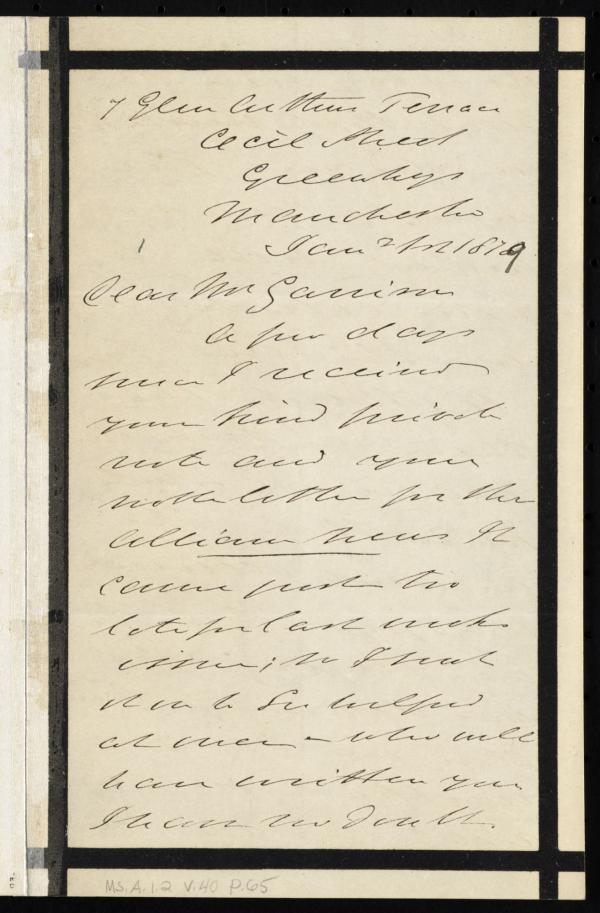 7 Glen Terrace
Cecil Street
Greenheys
Manchester
Jan 1879
1
Dear Mr Garrison
A few days
since I received
your kind private
note and your
noble letter for the
Alliance News. It
came just too
late for last weeks
issue; so I sent
it on to Sir Wilfred
at once – who will
have written you
I have no doubt.
MS.A.1.2 V.40 P.65